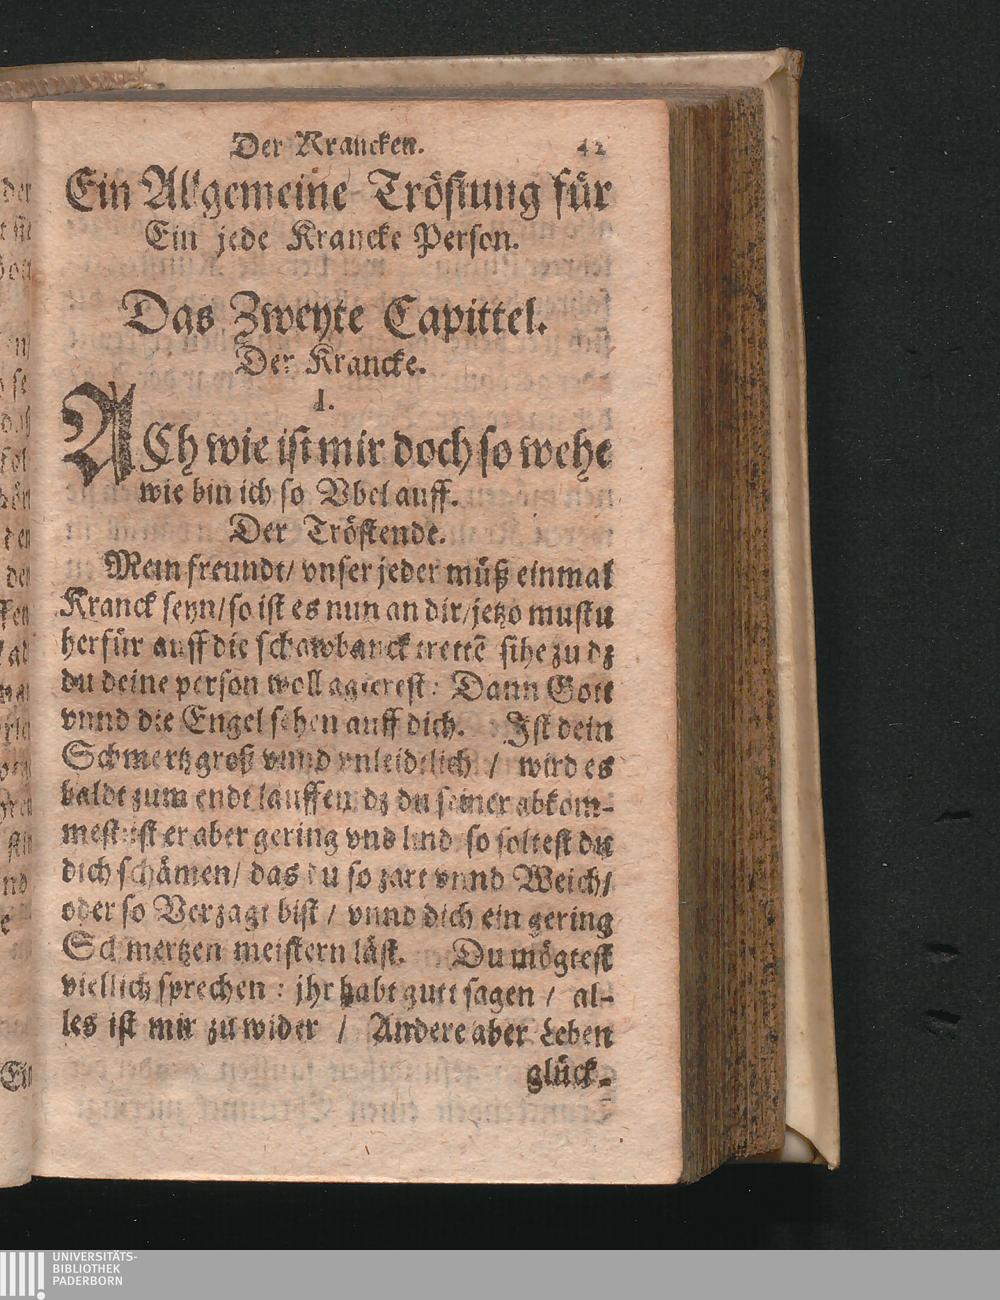 Der Krancken. 42
Ein Allgemeine Tröstung für
Ein jede Krancke Person.
Das Zweyte Capittel.
Der Krancke.
1.
ACh wie ist mir doch so wehe
wie bin ich so Vbel auff.
Der Tröstende.
Mein freundt/ vnser jeder müß einmal
Kranck seyn/ so ist es nun an dir/ jetzo mustu
herfür auff die schawbanck trettē sihe zu dz
du deine person woll agierest: Dann Gott
vnnd die Engel sehen auff dich. Ist dein
Schmertz groß vnnd vnleidtlich / wird es
baldt zum endt lauffen dz du seiner abkom-
mest: ist er aber gering vnd lind: so soltest du
dich schämen/ das du so zart vnnd Weich/
oder so Verzagt bist / vnnd dich ein gering
Schmertzen meistern läst. Du mögtest
villicht sprechen : jhr habt gutt sagen / al-
les ist mir zu wider / Andere aber Leben
glück-
UNIVERSITÄTS-
BIBLIOTHEK
PADERBORN